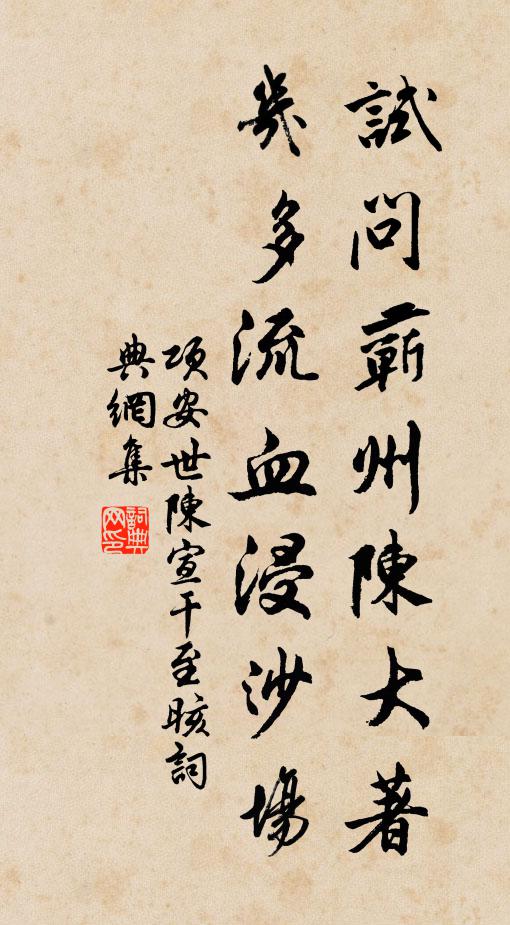 試問蘄州陳大著
幾多流血浸沙場
項安世陳宣干至晐詞
典網集
詞典網印